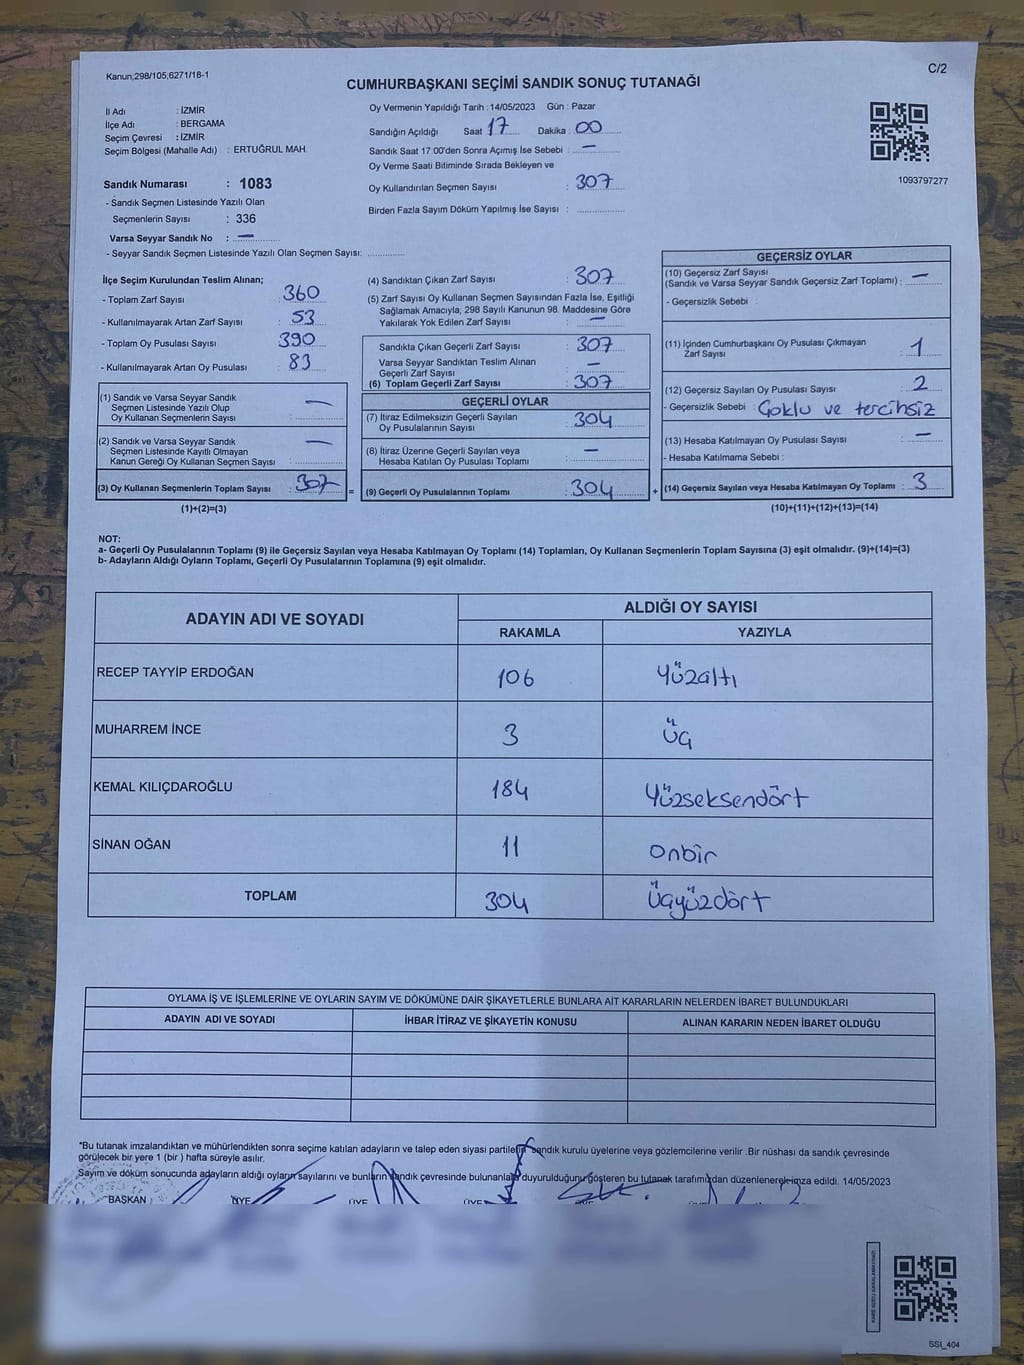 Kanun;298/105;6271/18-1
C/2
CUMHURBAŞKANI SEÇİMİ SANDIK SONUÇ TUTANAĞI
İl Adı : İZMİR
İlçe Adı : BERGAMA
Seçim Çevresi : İZMİR
Seçim Bölgesi (Mahalle Adı) : ERTUĞRUL MAH.
Sandık Numarası : 1083
- Sandık Seçmen Listesinde Yazılı Olan
Seçmenlerin Sayısı : 336
Varsa Seyyar Sandık No : —
- Seyyar Sandık Seçmen Listesinde Yazılı Olan Seçmen Sayısı:
Oy Vermenin Yapıldığı Tarih : 14/05/2023 Gün : Pazar
Sandığın Açıldığı Saat 17 Dakika : 00
Sandık Saat 17:00'den Sonra Açımış İse Sebebi : —
Oy Verme Saati Bitiminde Sırada Bekleyen ve
Oy Kullandırılan Seçmen Sayısı : 307
Birden Fazla Sayım Döküm Yapılmış İse Sayısı :
1093797277
İlçe Seçim Kurulundan Teslim Alınan;
- Toplam Zarf Sayısı : 360
- Kullanılmayarak Artan Zarf Sayısı : 53
- Toplam Oy Pusulası Sayısı : 390
- Kullanılmayarak Artan Oy Pusulası : 83
(1) Sandık ve Varsa Seyyar Sandık
Seçmen Listesinde Yazılı Olup
Oy Kullanan Seçmenlerin Sayısı : —
(2) Sandık ve Varsa Seyyar Sandık
Seçmen Listesinde Kayıtlı Olmayan
Kanun Gereği Oy Kullanan Seçmen Sayısı : —
(3) Oy Kullanan Seçmenlerin Toplam Sayısı : 307 =
(1)+(2)=(3)
(4) Sandıktan Çıkan Zarf Sayısı : 307
(5) Zarf Sayısı Oy Kullanan Seçmen Sayısından Fazla İse, Eşitliği
Sağlamak Amacıyla; 298 Sayılı Kanunun 98. Maddesine Göre
Yakılarak Yok Edilen Zarf Sayısı : —
Sandıkla Çıkan Geçerli Zarf Sayısı : 307
Varsa Seyyar Sandıktan Teslim Alınan
Geçerli Zarf Sayısı : —
(6) Toplam Geçerli Zarf Sayısı : 307
GEÇERLİ OYLAR
(7) İtiraz Edilmeksizin Geçerli Sayılan
Oy Pusulalarının Sayısı : 304
(8) İtiraz Üzerine Geçerli Sayılan veya
Hesaba Katılan Oy Pusulası Toplamı : —
(9) Geçerli Oy Pusulalarının Toplamı : 304 +
GEÇERSİZ OYLAR
(10) Geçersiz Zarf Sayısı
(Sandık ve Varsa Seyyar Sandık Geçersiz Zarf Toplamı) : —
- Geçersizlik Sebebi :
(11) İçinden Cumhurbaşkanı Oy Pusulası Çıkmayan
Zarf Sayısı : 1
(12) Geçersiz Sayılan Oy Pusulası Sayısı : 2
- Geçersizlik Sebebi : Çoklu ve tercihsiz
(13) Hesaba Katılmayan Oy Pusulası Sayısı : —
- Hesaba Katılmama Sebebi :
(14) Geçersiz Sayılan veya Hesaba Katılmayan Oy Toplamı : 3
(10)+(11)+(12)+(13)=(14)
NOT:
a- Geçerli Oy Pusulalarının Toplamı (9) ile Geçersiz Sayılan veya Hesaba Katılmayan Oy Toplamı (14) Toplamları, Oy Kullanan Seçmenlerin Toplam Sayısına (3) eşit olmalıdır. (9)+(14)=(3)
b- Adayların Aldığı Oyların Toplamı, Geçerli Oy Pusulalarının Toplamına (9) eşit olmalıdır.
ADAYIN ADI VE SOYADI ALDIĞI OY SAYISI
RAKAMLA YAZIYLA
RECEP TAYYİP ERDOĞAN 106 Yüzaltı
MUHARREM İNCE 3 üç
KEMAL KILIÇDAROĞLU 184 Yüzseksendört
SİNAN OĞAN 11 onbir
TOPLAM 304 üçyüzdört
OYLAMA İŞ VE İŞLEMLERİNE VE OYLARIN SAYIM VE DÖKÜMÜNE DAİR ŞİKAYETLERLE BUNLARA AİT KARARLARIN NELERDEN İBARET BULUNDUKLARI
ADAYIN ADI VE SOYADI İHBAR İTİRAZ VE ŞİKAYETİN KONUSU ALINAN KARARIN NEDEN İBARET OLDUĞU
*Bu tutanak imzalandıktan ve mühürlendikten sonra seçime katılan adayların ve talep eden siyasi partilerin sandık kurulu üyelerine veya gözlemcilerine verilir .Bir nüshası da sandık çevresinde
görülecek bir yere 1 (bir ) hafta süreyle asılır.
Sayım ve döküm sonucunda adayların aldığı oyların sayılarını ve bunların sandık çevresinde bulunanlara duyurulduğunu gösteren bu tutanak tarafımızdan düzenlenerek imza edildi. 14/05/2023
BAŞKAN ÜYE ÜYE ÜYE
SSI_404